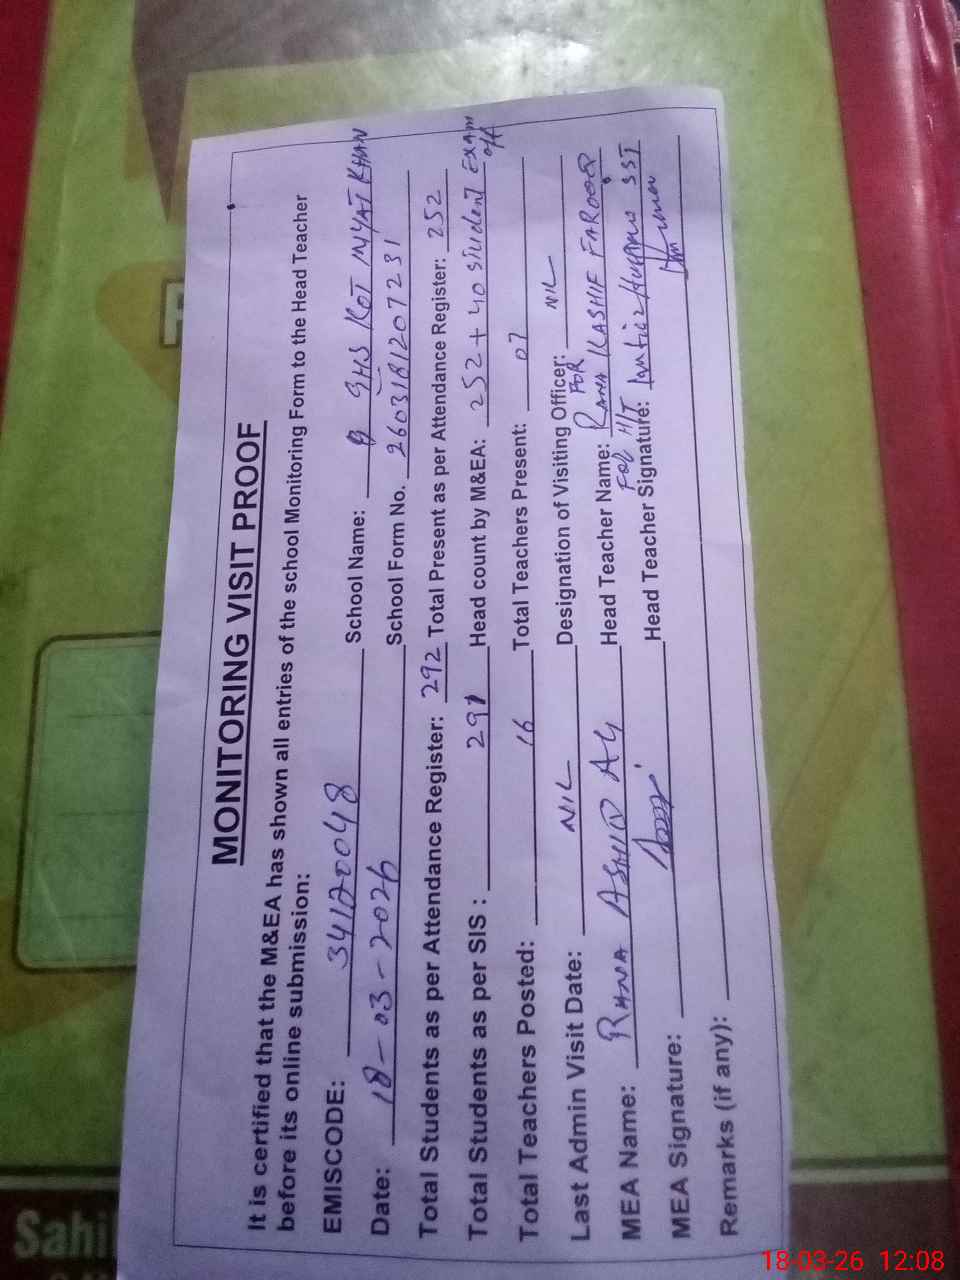 MONITORING VISIT PROOF
It is certified that the M&EA has shown all entries of the school Monitoring Form to the Head Teacher
before its online submission:
EMISCODE: 34120048 School Name: GHS KOT INYAT KHAN
Date: 18-03-2026 School Form No. 2603181207231
Total Students as per Attendance Register: 292 Total Present as per Attendance Register: 252
Total Students as per SIS : 291 Head count by M&EA: 252 + 40 student EXAM off
Total Teachers Posted: 16 Total Teachers Present: 07
Last Admin Visit Date: NIL Designation of Visiting Officer: NIL
FOR
MEA Name: RANA ASHID ALI Head Teacher Name: RANA KASHIF FAROOQ
For H/T
MEA Signature: Head Teacher Signature: SST
Remarks (if any):
Sahi
18-03-26 12:08